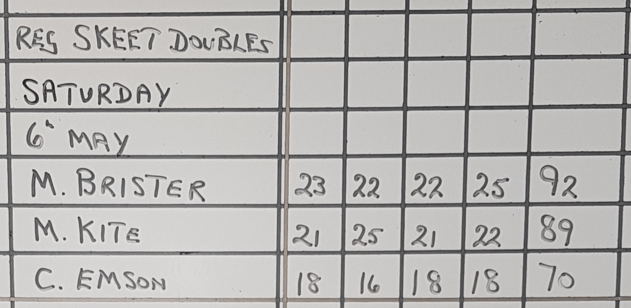 REG SKEET DOUBLES
SATURDAY
6th MAY
M. BRISTER 23 22 22 25 92
M. KITE 21 25 21 22 89
C. EMSON 18 16 18 18 70